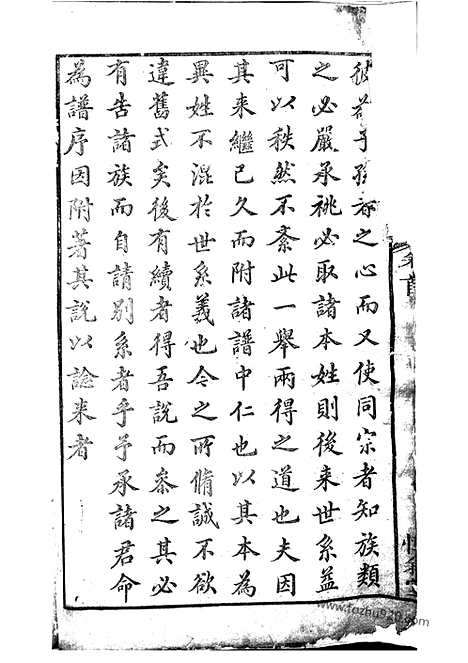 彼為子孫者之心而又使同宗者知族類
之必嚴承祧必取諸本姓則後来世系益
可以秩然不紊此一舉兩得之道也夫因
其来繼已久而附諸譜中仁也以其本為
異姓不混於世系義也今之所脩誠不欲
違舊式矣後有續者得吾說而叅之其必
有告諸族而自請别系者乎予承諸君命
為譜序因附著其說以諗来者
卷首
www.fozhu920.com